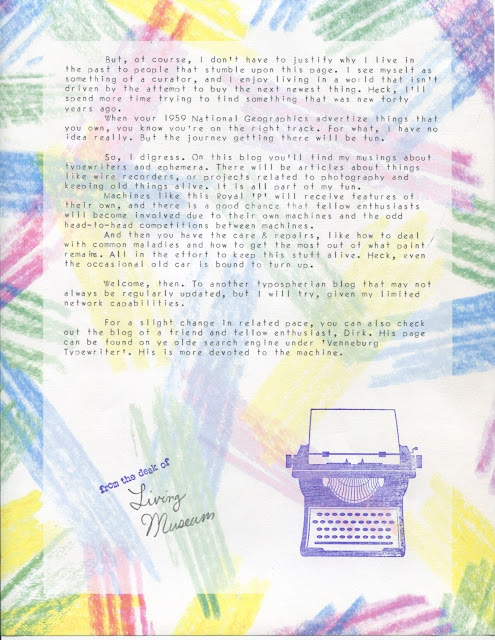 But, of course, I don't have to justify why I live in
the past to people that stumble upon this page. I see myself as
something of a curator, and I enjoy living in a world that isn't
driven by the attempt to buy the next newest thing. Heck, I'll
spend more time trying to find something that was new forty
years ago.
When your 1959 National Geographics advertize things that
you own, you know you're on the right track. For what, i have no
idea really. But the journey getting there will be fun.
So, I digress. On this blog you'll find my musings about
typewriters and ephemera. There will be articles about things
like wire recorders, or projects related to photography and
keeping old things alive. It is all part of my fun.
Machines like this Royal 'P' will receive features of
their own, and there is a good chance that fellow enthusiasts
will become involved due to their own machines and the odd
head-to-head competitions between machines.
And then you have the care & repairs, like how to deal
with common maladies and how to get the most out of what paint
remains. All in the effort to keep this stuff alive. Heck, even
the occasional old car is bound to turn up.
Welcome, then. To another typospherian blog that may not
always be regularly updated, but I will try, given my limited
network capabilities.
For a slight change in related pace, you can also check
out the blog of a friend and fellow enthusiast, Dirk. His page
can be found on ye olde search engine under 'Venneburg
Typewriter'. His is more devoted to the machine.
from the desk of
Living
Museum